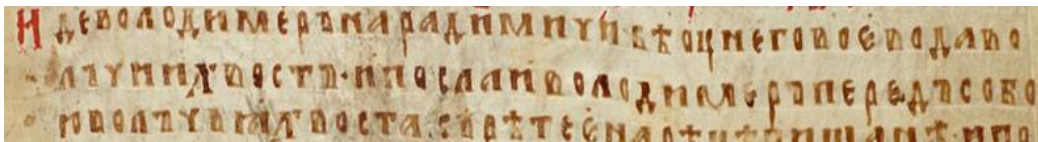 Идеволодимеръна радимичи бѣоунеговоєводаво
лъчиихвостъ·ипослаиволодимеръпередъсобо
юволъчьꙗхвоста·сърѣтеєнарѣцѣпищанѣ·ипо